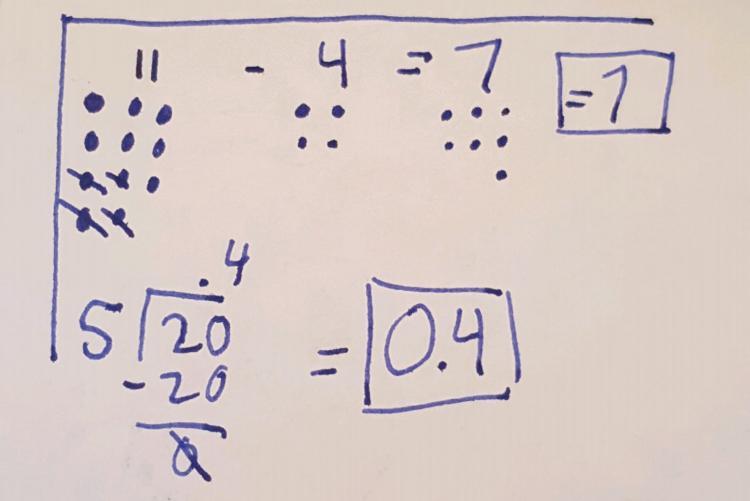 11 - 4 = 7 = 7
.4
5 20 = 0.4
-20
0